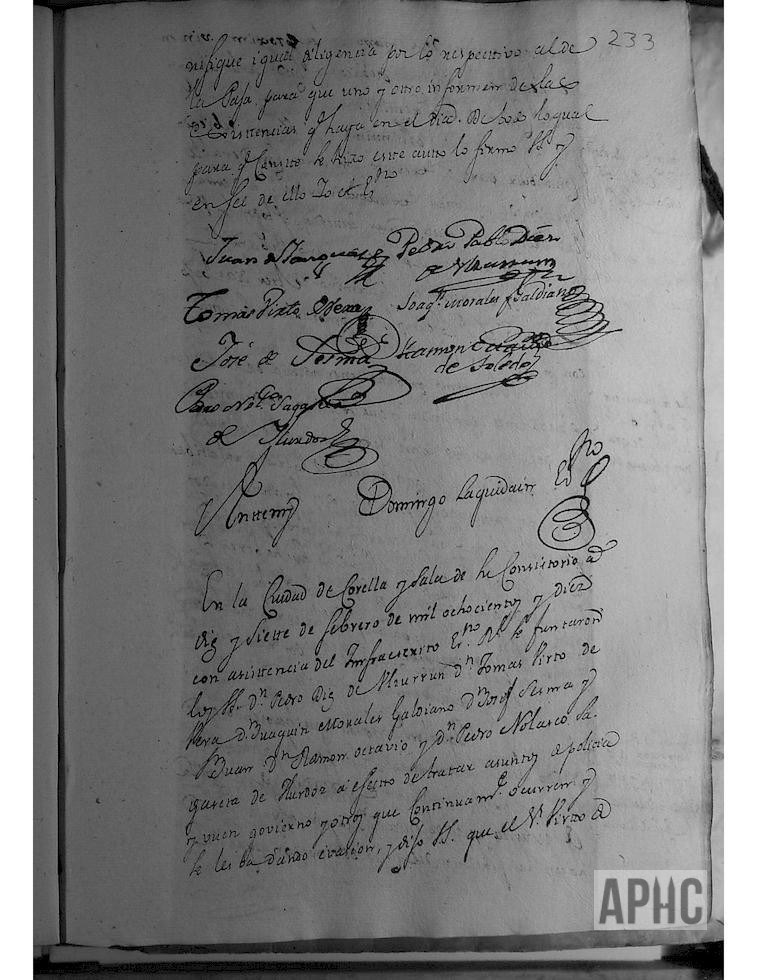 233
nifique igual diligencia por lo respectivo al de
la Paja para que uno y otro informen de las
existencias q haya en el dia. De todo lo qual
para q Conste se hizo este auto lo firmo SS. y
en fee de ello Yo el Esno
Juan de Pedro Pablo Diez
de Uhurrun
Tomas Virto de Vera Joaqn. Morales y Galdiano
José de Sesma Ramon Octavio
de Toledo
Pedro Nolco Sagaseta
de Ylurdoz
Antemi Domingo Laquidain Esno
En la Ciudad de Corella y Sala de su Consistorio a
diez y siette de febrero de mil ochocientos y diez
con asistencia del Infraescrito Esno. Rl. se juntaron
los SS. Dn. Pedro Diez de Uhurrun Dn. Tomas Virto de
Vera Dn. Juaquin Morales Galdiano Dn. Josef Sesma y
Dn. Ramon octavio y Dn. Pedro Nolasco Sa-
gaseta de Ylurdoz a efecto de tratar asuntos de policia
y vuen govierno y otros que Continuamte. ocurren y
se les ba dando evasion, y dijo SS. que el Sr. Virto de
APHC